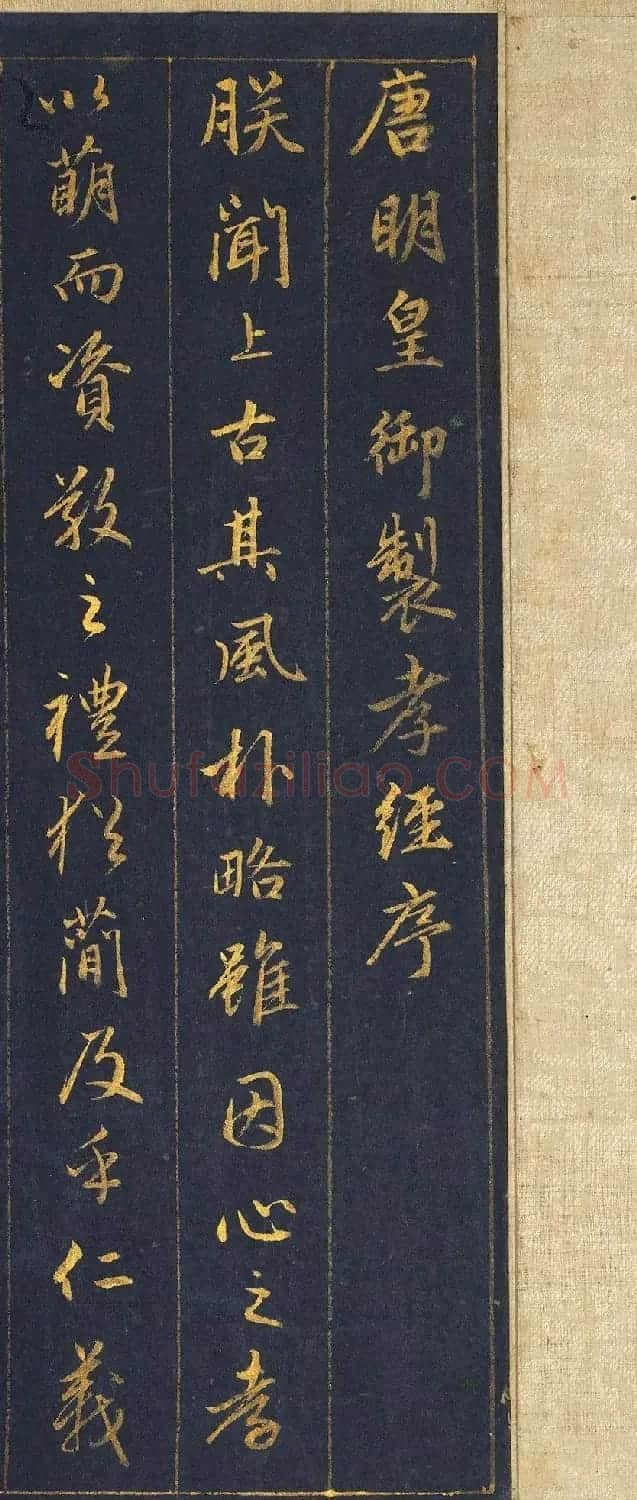 唐明皇御製孝經序
朕聞上古其風朴略雖因心之孝
以萌而資敬之禮猶簡及乎仁義
Shufaziliao.COM